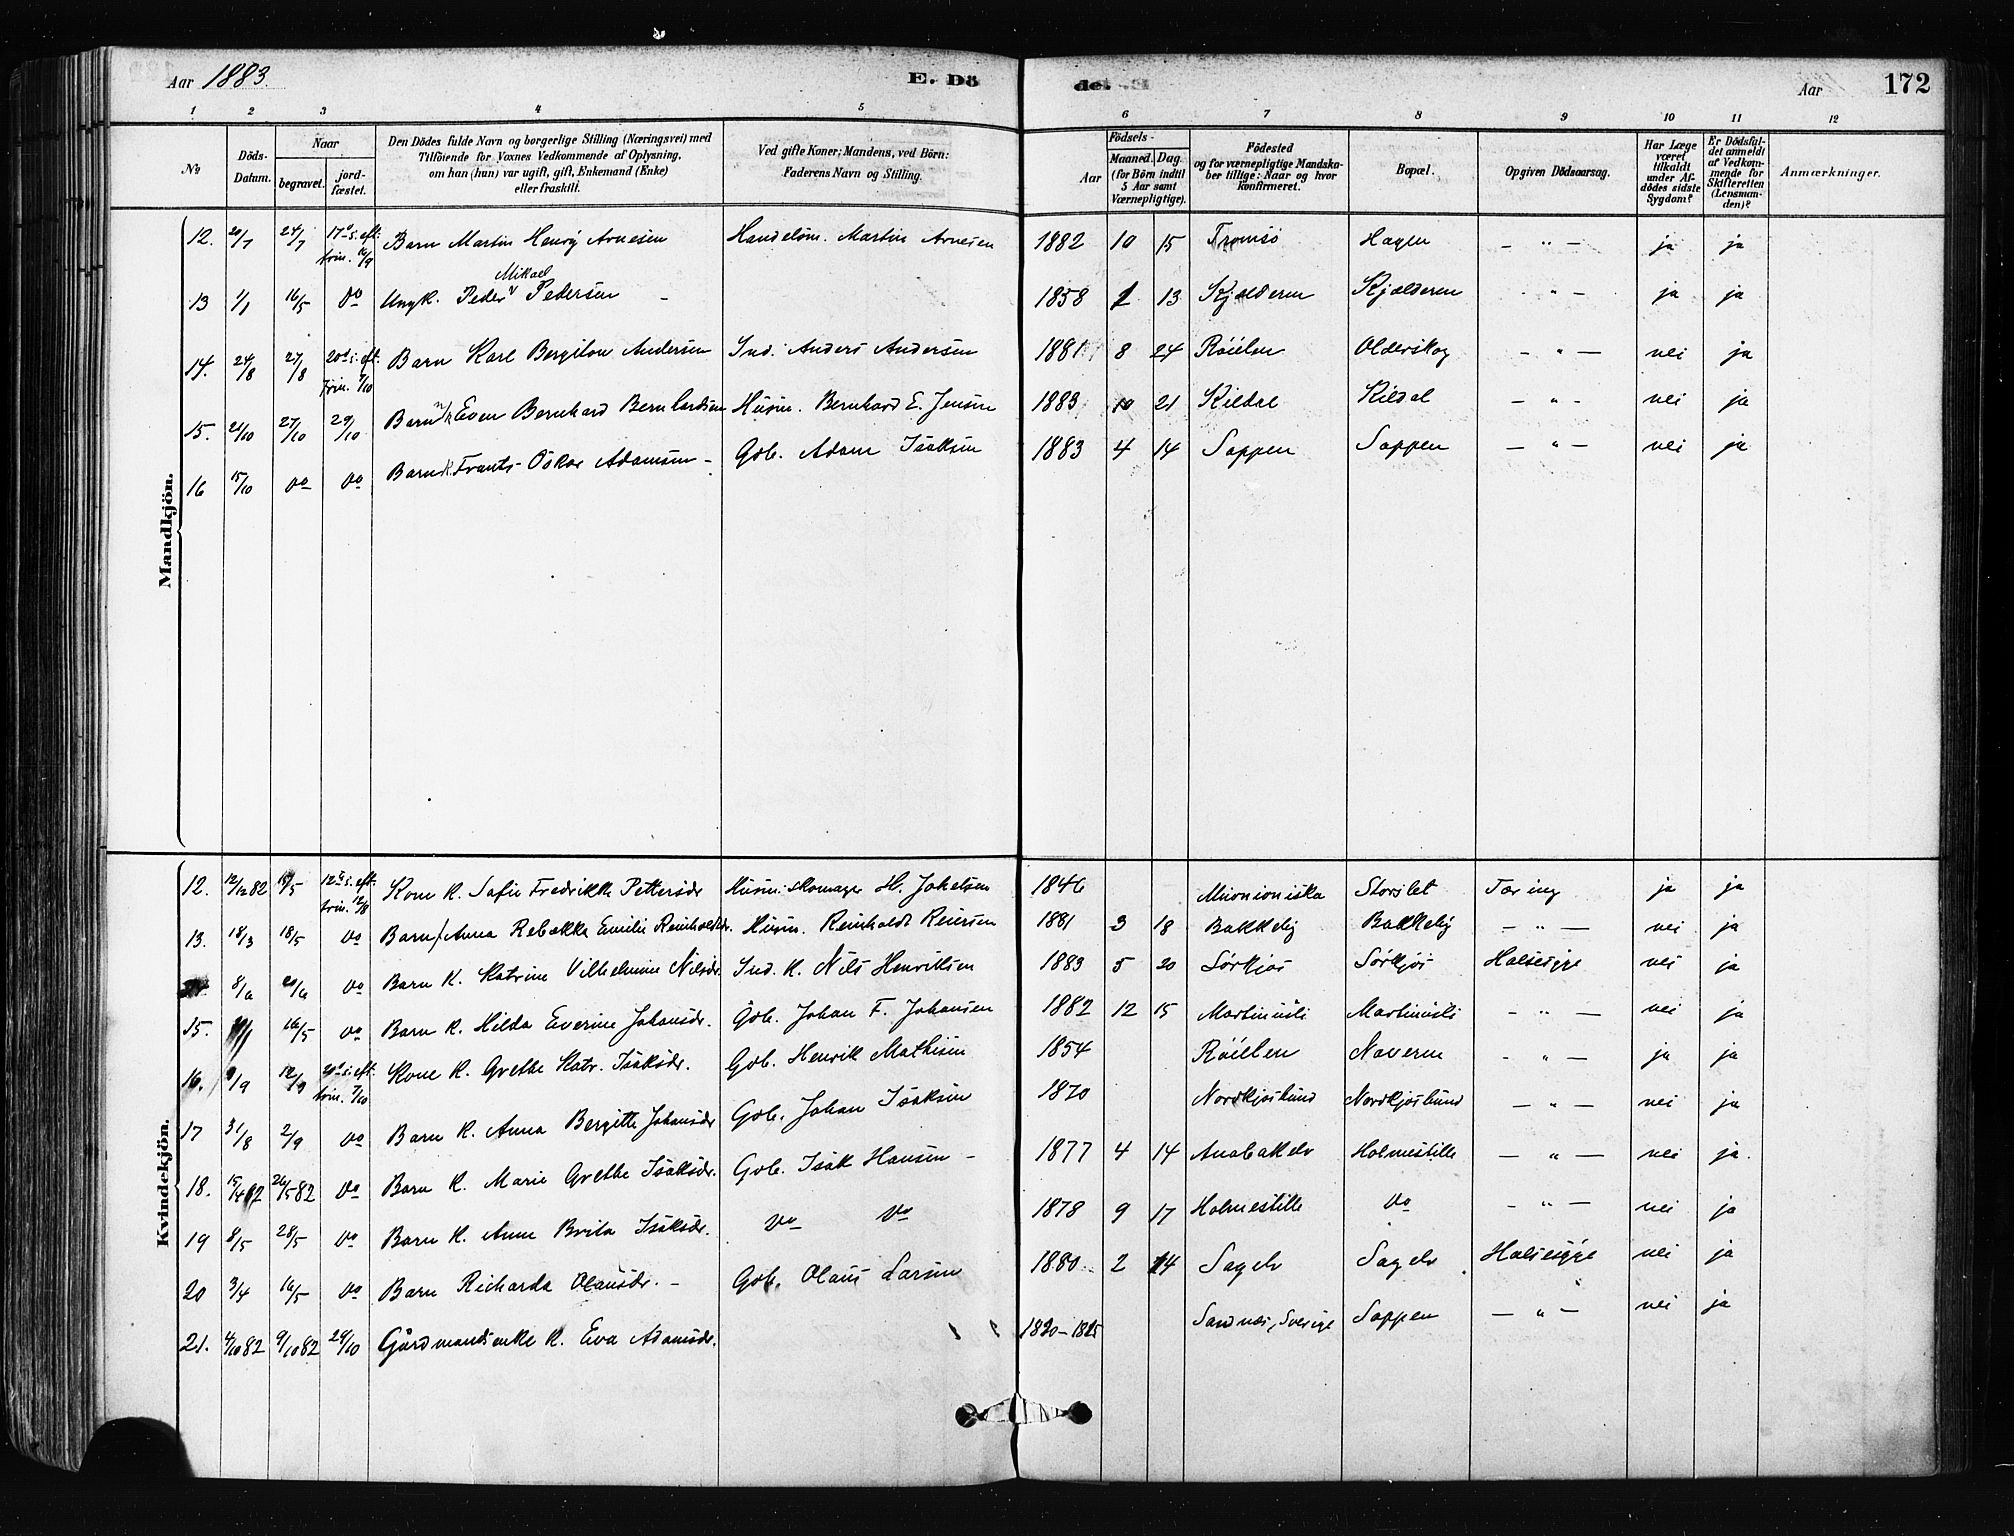 Aar 1883. E. Dö de. Aar 172
1 2 3 4 5 6 7 8 9 10 11 12
No Döds-Datum. Naar begravet. jord-fæstet. Den Dödes fulde Navn og borgerlige Stilling (Næringsvei) med Tilföiende for Voxnes Vedkommende af Oplysning, om han (hun) var ugift, gift, Enkemand (Enke) eller fraskilt. Ved gifte Koner: Mandens, ved Börn: Faderens Navn og Stilling. Födsels- Aar Maaned. Dag. (for Börn indtil 5 Aar samt Værnepligtige). Födested og for værnepligtige Mandskaber tillige: Naar og hvor konfirmeret. Bopæl. Opgiven Dödsaarsag. Har Læge været tilkaldt under Afdödes sidste Sygdom? Er Dödsfaldet anmeldt af Vedkommende for Skifteretten (Lensmanden)? Anmærkninger.
Mandkjön.
12. 20/7 24/7 17de s. eft. trin. 16/9 Barn Martin Henry Arnesen Handelsm. Martin Arnesen 1882 10 15 Tromsö Hagen — " — ja ja
13 1/1 16/5 do Ungk. Peder Mikael Pedersen — 1858 1 13 Kjælderen Kjælderen - " — ja ja
14. 24/8 27/8 20de s. eft. trin. 7/10 Barn Karl Bergiton Andersen Ind. Anders Andersen 1881 8 24 Röielen Olderskog — " — nei ja
15. 21/10 27/10 29/10 Barn Even Bernhard Bernhardsen Husm. Bernhard E. Jensen 1883 10 21 Kildal Kildal — " - nei ja
16 15/10 do do Barn k. Frants Oskar Adamsen - Gbr. Adam Isaksen 1883 4 14 Sappen Sappen — " — nei ja
Kvindekjön.
12. 12/12 82 15/5 12te s. eft. trin. 12/8 Kone k. Sofie Fredrikke Pettersdr Husm. skomager H. Johelsen 1846 Muonioniska Storslet Tæring ja ja
13. 18/3 18/5 do Barn Anna Rebekka Emilie Reinholdtdr. Husm. Reinholdt Reiersen 1881 3 18 Bakkeby Bakkeby — " — nei ja
8/6 20/6 do Barn k. Katrine Vilhelmine Nilsdr. Ind. k. Nils Henriksen 1883 5 20 Sörkjos Sörkjos Halsesyge nei ja
15. 16/5 do Barn k. Hilda Everine Johansdr. Gbr. Johan F. Johansen 1882 12 15 Martinusli Martinusli - " — nei ja
16. /9 12/9 20de s. eft. trin. 7/10 Kone k. Grethe Katr. Isaksdr. Gbr. Henrik Mathisen 1854 Röielen Naveren - " — ja ja
17 31/8 2/9 do Barn k. Anna Bergitte Johansdr Gbr. Johan Isaksen 1870 Nordkjosbund Nordkjosbund — " — nei ja
18. 15/4 82 26/5 82 do Barn k. Marie Grethe Isaksdr. Gbr. Isak Hansen — 1877 4 14 Anabakelv Holmestille — " — nei ja.
19 8/5 28/5 do Barn k. Anne Brita Isaksdr. do do 1878 9 17 Holmestille do - " — nei ja
20 3/4 16/5 do Barn Richarda Olausdr. — Gbr. Olaus Larsen 1880 2 14 Sagelv Sagelv Halsesyge nei ja
21. 4/10 82 9/10 82 29/10 Gårdmandsenke k. Eva Adamsdr. 1820–1825 Sandnæs, Sverige Sappen — " — nei ja